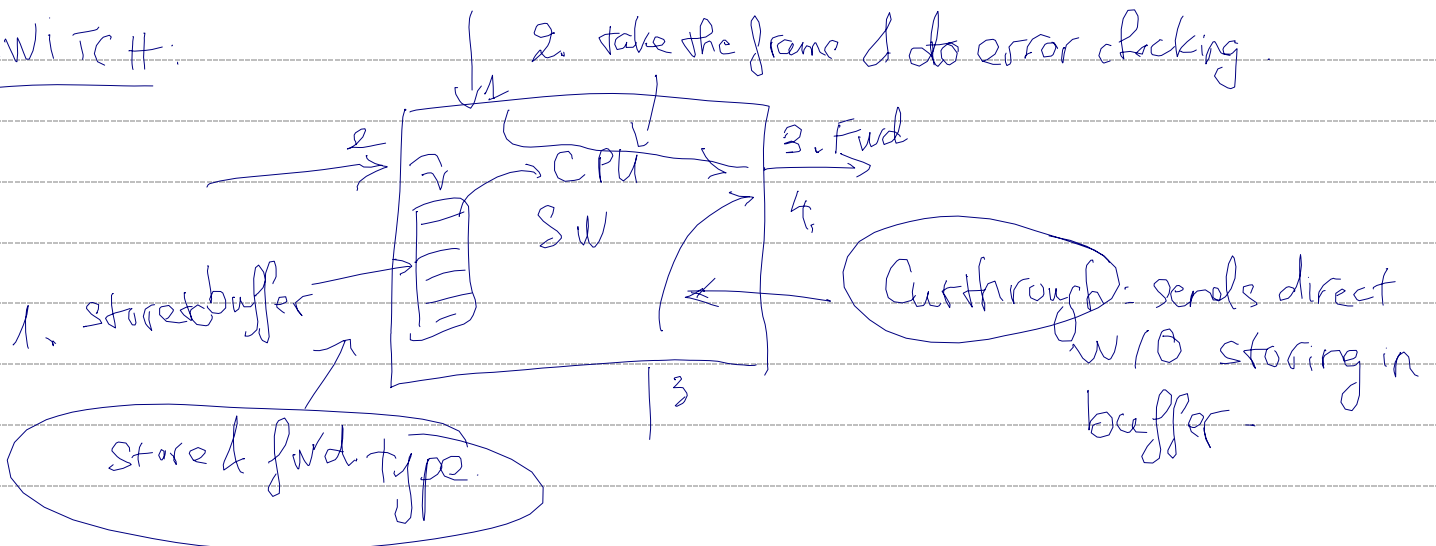 WITCH:
2. take the frame & do error checking.
1
2
3. Fwd
CPU
4.
SW
1. store to buffer
Cutthrough: sends direct
w/o storing in
buffer -
3
store & fwd. type.